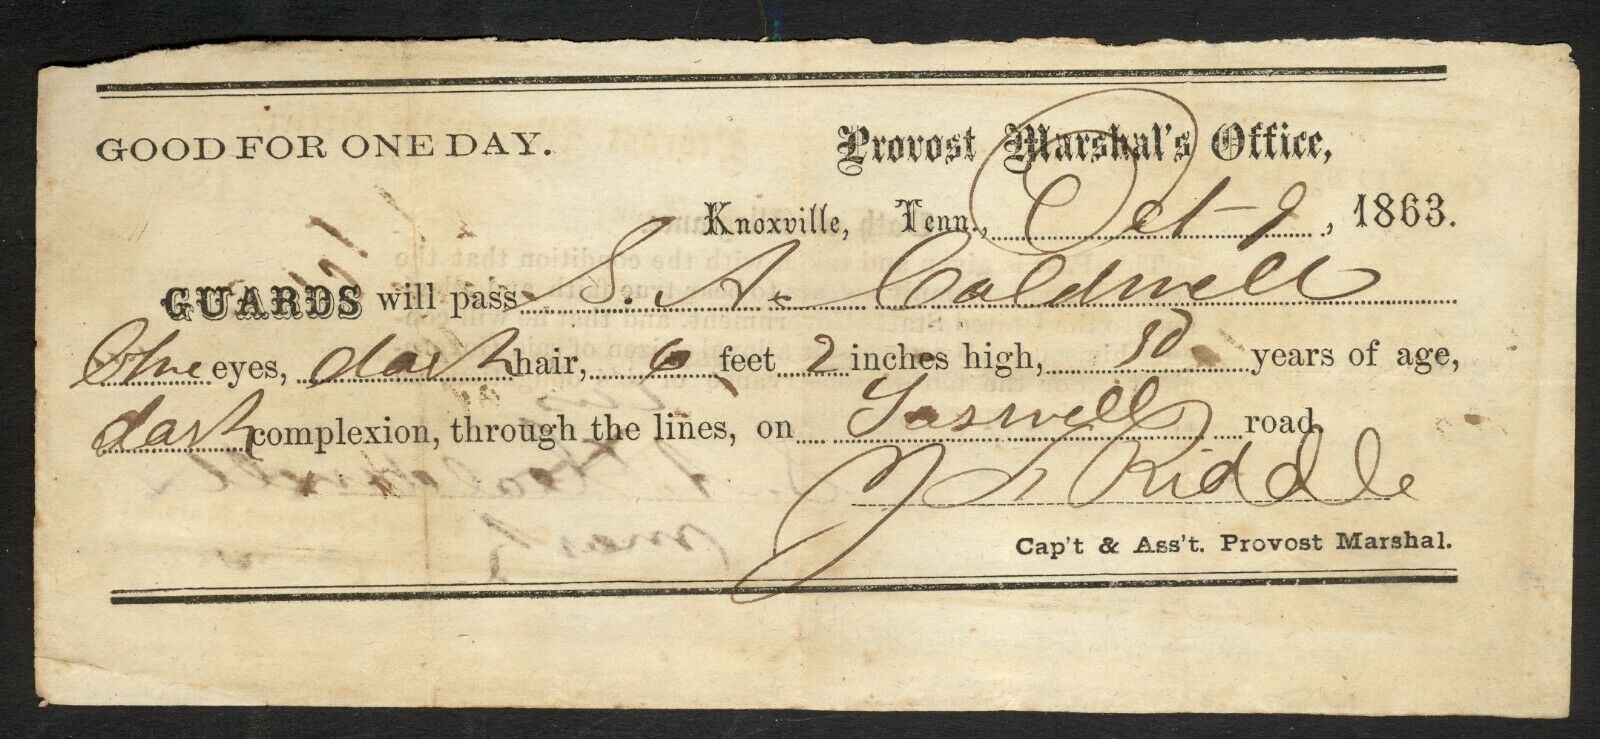 GOOD FOR ONE DAY. Provost Marshal's Office,
Knoxville, Tenn., Oct 9, 1863.
GUARDS will pass S. A. Caldwell
eyes, dark hair, 6 feet 2 inches high, 30 years of age,
dark complexion, through the lines, on Taswell road
Riddle
Cap't & Ass't. Provost Marshal.